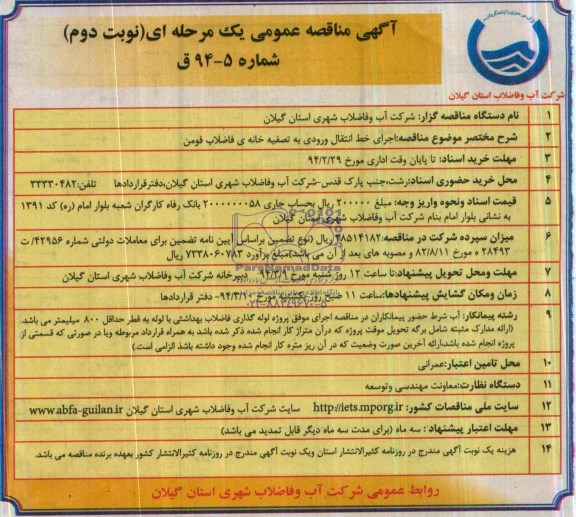 آگهی مناقصه عمومی یک مرحله ای(نوبت دوم)
شماره ۵-۹۴ ق
شرکت آب وفاضلاب شهری استان گیلان
۱ نام دستگاه مناقصه گزار: شرکت آب وفاضلاب شهری استان گیلان
۲ شرح مختصر موضوع مناقصه:اجرای خط انتقال ورودی به تصفیه خانه ی فاضلاب فومن
۳ مهلت خرید اسناد: تا پایان وقت اداری مورخ ۹۴/۲/۲۹
۴ محل خرید حضوری اسناد:رشت،جنب پارک قدس-شرکت آب وفاضلاب شهری استان گیلان،دفترقراردادها تلفن:۳۳۳۳۰۴۸۲
۵ قیمت اسناد ونحوه واریز وجه: مبلغ ۲۰۰۰۰۰ ریال بحساب جاری ۲۰۰۰۰۰۰۰۵۸ بانک رفاه کارگران شعبه بلوار امام (ره) کد ۱۳۹۱
به نشانی بلوار امام بنام شرکت آب وفاضلاب شهری استان گیلان
۶ میزان سپرده شرکت در مناقصه:۴۸۵۱۴۱۸۲ ریال (نوع تضمین براساس آیین نامه تضمین برای معاملات دولتی شماره ۴۲۹۵۶/ ت
۲۸۴۹۳ ه مورخ ۸۲/۸/۱۱ و مصوبه های بعد از آن می باشد)مبلغ برآورد ۷۳۳۸۰۶۰۷۸۳ ریال
۷ مهلت ومحل تحویل پیشنهادها:تا ساعت ۱۲ روز شنبه مورخ ۹۴/۳/۹ دبیرخانه شرکت آب وفاضلاب شهری استان گیلان
۸ زمان ومکان گشایش پیشنهادها:ساعت ۱۱ صبح روز یکشنبه مورخ ۹۴/۳/۱۰- دفتر قراردادها
۹ رشته پیمانکار: آب شرط حضور پیمانکاران در مناقصه اجرای موفق پروژه لوله گذاری فاضلاب بهداشتی با لوله به قطر حداقل ۸۰۰ میلیمتر می باشد.
(ارائه مدارک مثبته شامل برگه تحویل موقت پروژه که درآن متراژ کار انجام شده ذکر شده باشد به همراه قرارداد مربوطه ویا در صورتی که قسمتی از
پروژه انجام شده باشد،ارائه آخرین صورت وضعیت که در آن ریز متره کار انجام شده وجود داشته باشد الزامی است.)
۱۰ محل تامین اعتبار:عمرانی
۱۱ دستگاه نظارت:معاونت مهندسی وتوسعه
۱۲ سایت ملی مناقصات کشور: http://iets.mporg.ir سایت شرکت آب وفاضلاب شهری استان گیلان www.abfa-guilan.ir
۱۳ مهلت اعتبار پیشنهاد: سه ماه (برای مدت سه ماه دیگر قابل تمدید می باشد)
۱۴ هزینه یک نوبت آگهی مندرج در روزنامه کثیرالانتشار استان ویک نوبت آگهی مندرج در روزنامه کثیرالانتشار کشور بعهده برنده مناقصه می باشد.
روابط عمومی شرکت آب وفاضلاب شهری استان گیلان
ParsNamadData